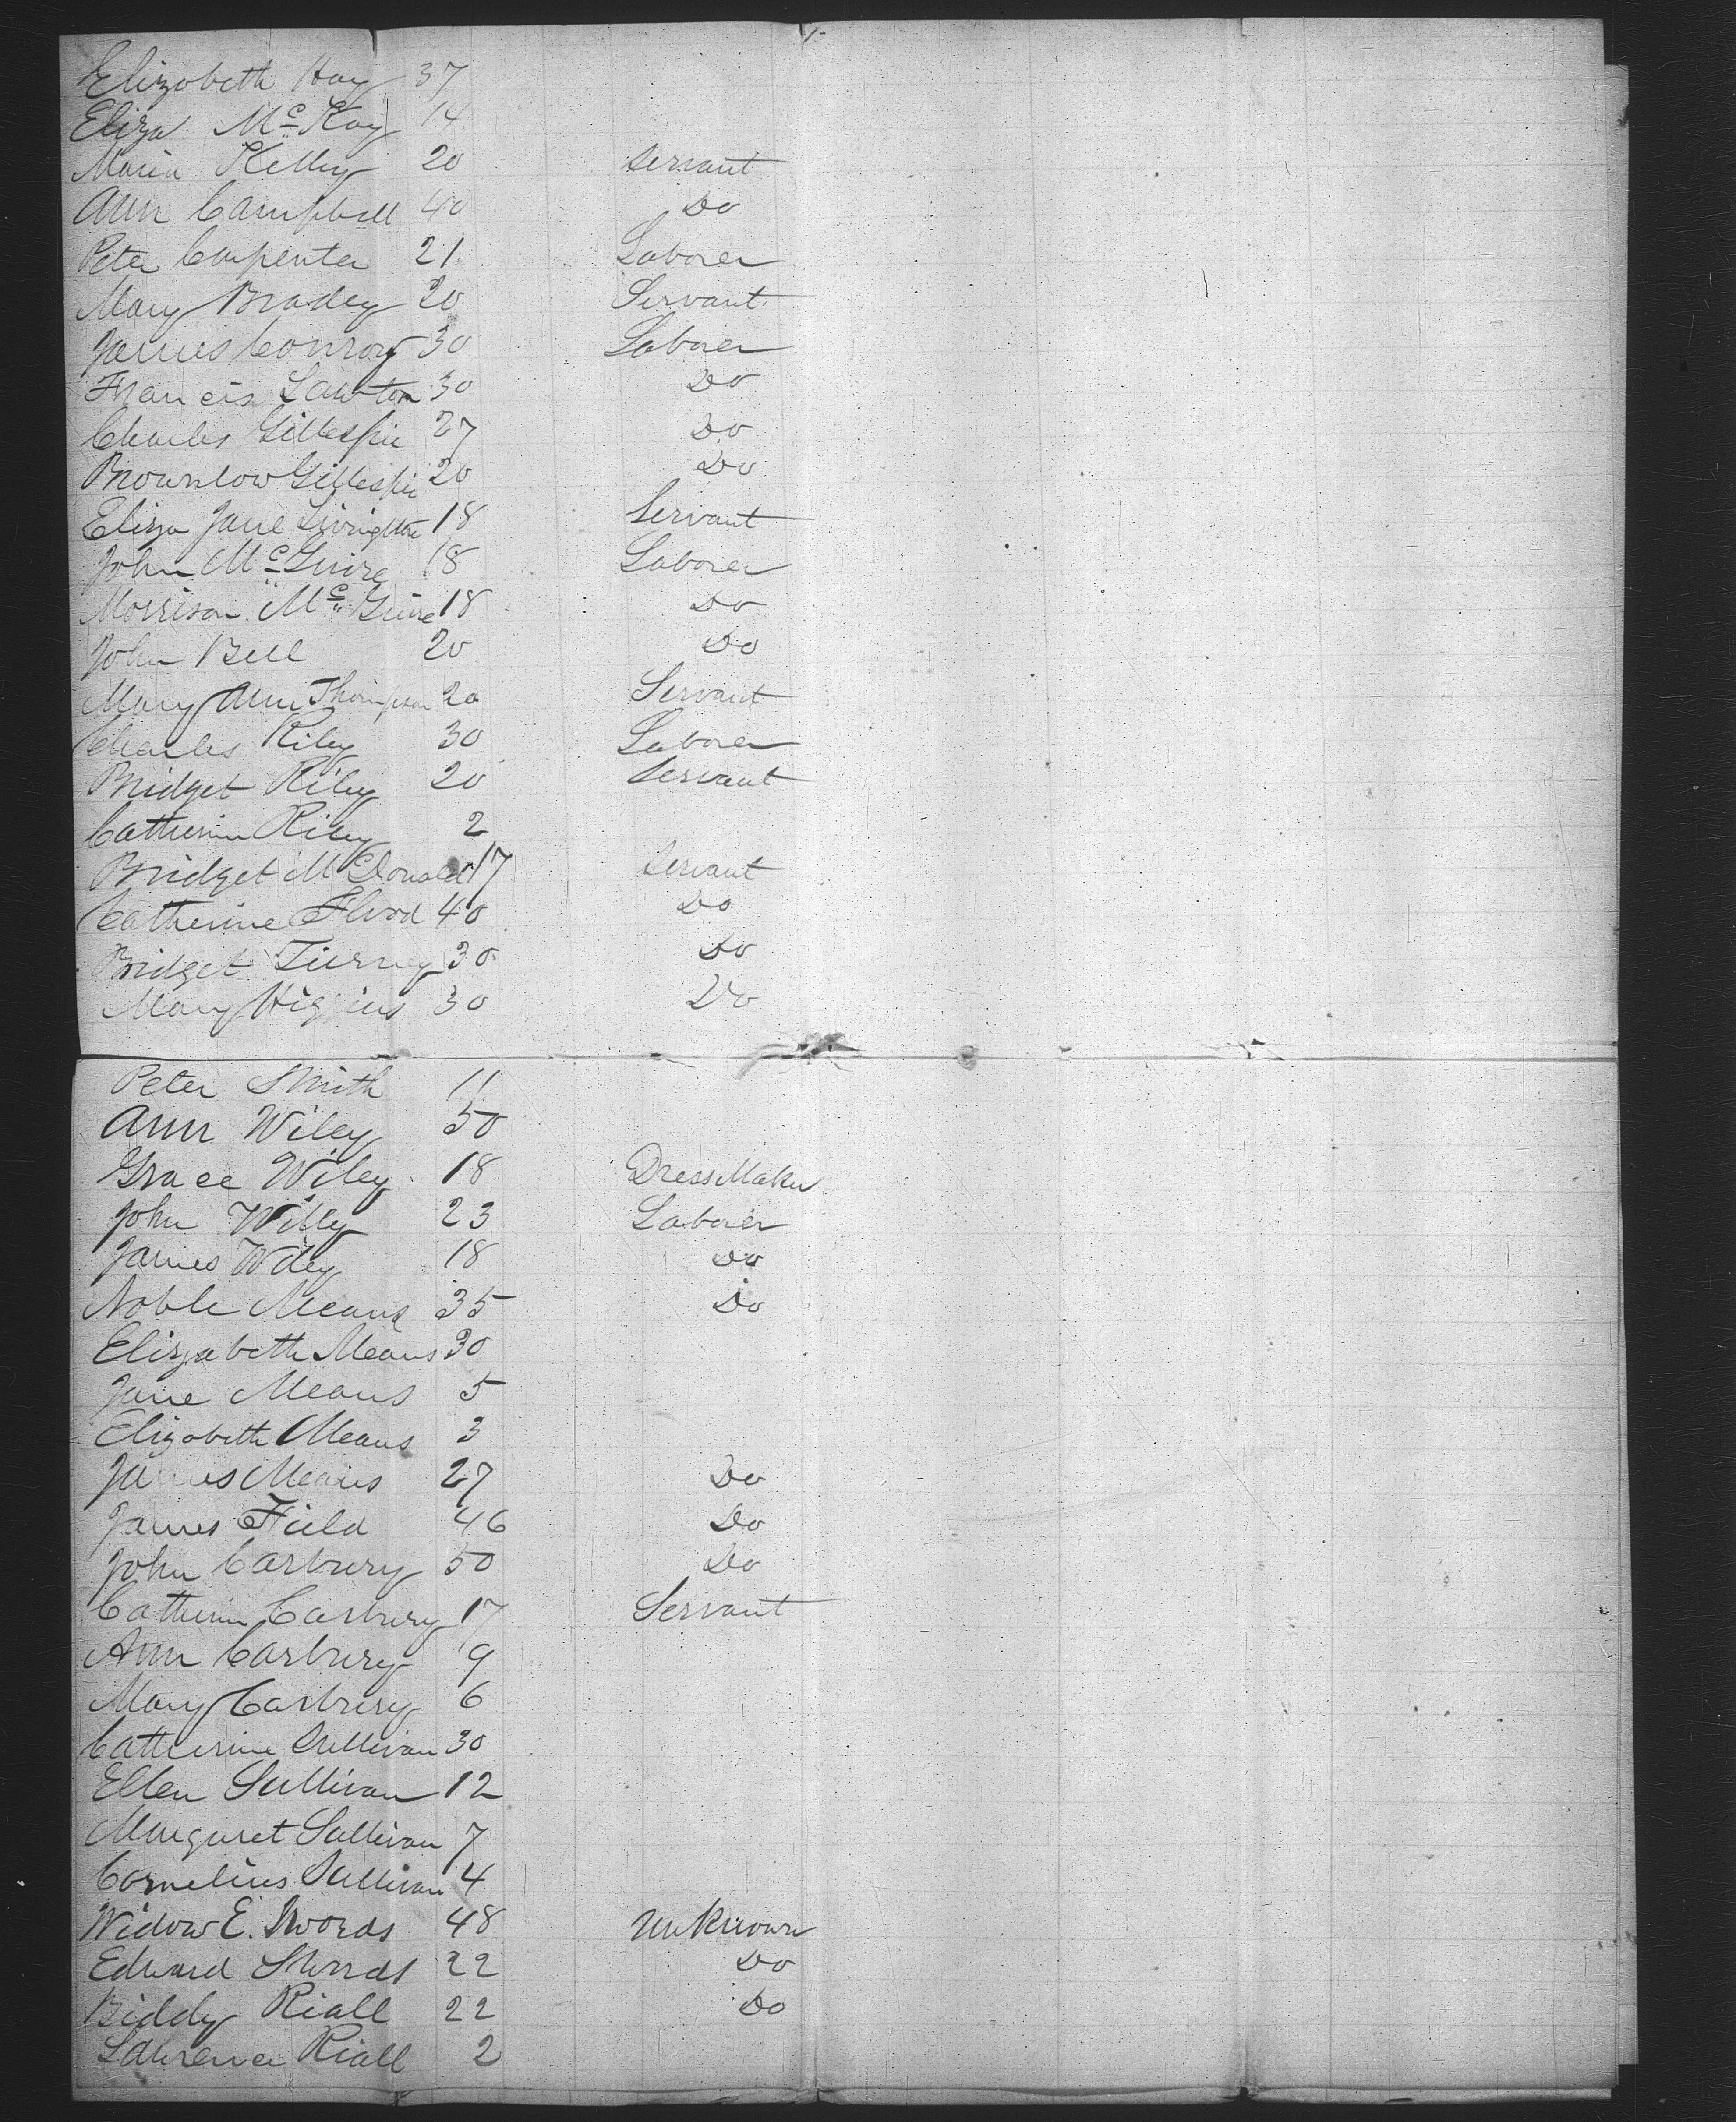 Elizabeth Hay 37
Eliza McKay 14
Maria Kelly 20 Servant
Ann Campbell 40 Do
Peter Carpenter 21 Laborer
Mary Bradey 20 Servant
James Conroy 30 Laborer
Francis Lawton 30 Do
Charles Gillespie 27 Do
Brownlow Gillespie 20 Do
Eliza Jane 18 Servant
John McGuire 18 Laborer
Morrison McGuire 18 Do
John Bell 20 Do
Mary Ann Thompson 20 Servant
Charles Riley 30 Laborer
Bridget Riley 20 Servant
Catherine Riley 2
Bridget McDonald 17 Servant
Catherine Flood 40 Do
Bridget Tierney 30 Do
Mary Higgins 30 Do
Peter Smith 11
Ann Wiley 50
Grace Wiley 18 Dress Maker
John Willy 23 Laborer
James Wiley 18 Do
Noble Means 35 Do
Elizabeth Means 30
Jane Means 5
Elizabeth Means 3
James Means 27 Do
James Field 46 Do
John Carbury 50 Do
Catherine Carbury 17 Servant
Ann Carbury 9
Mary Carbury 6
Catherine Sullivan 30
Ellen Sullivan 12
Margaret Sullivan 7
Cornelius Sullivan 4
Widow E. Swords 48 Unknown
Edward Swords 22 Do
Biddy Riall 22 Do
Lawrence Riall 2